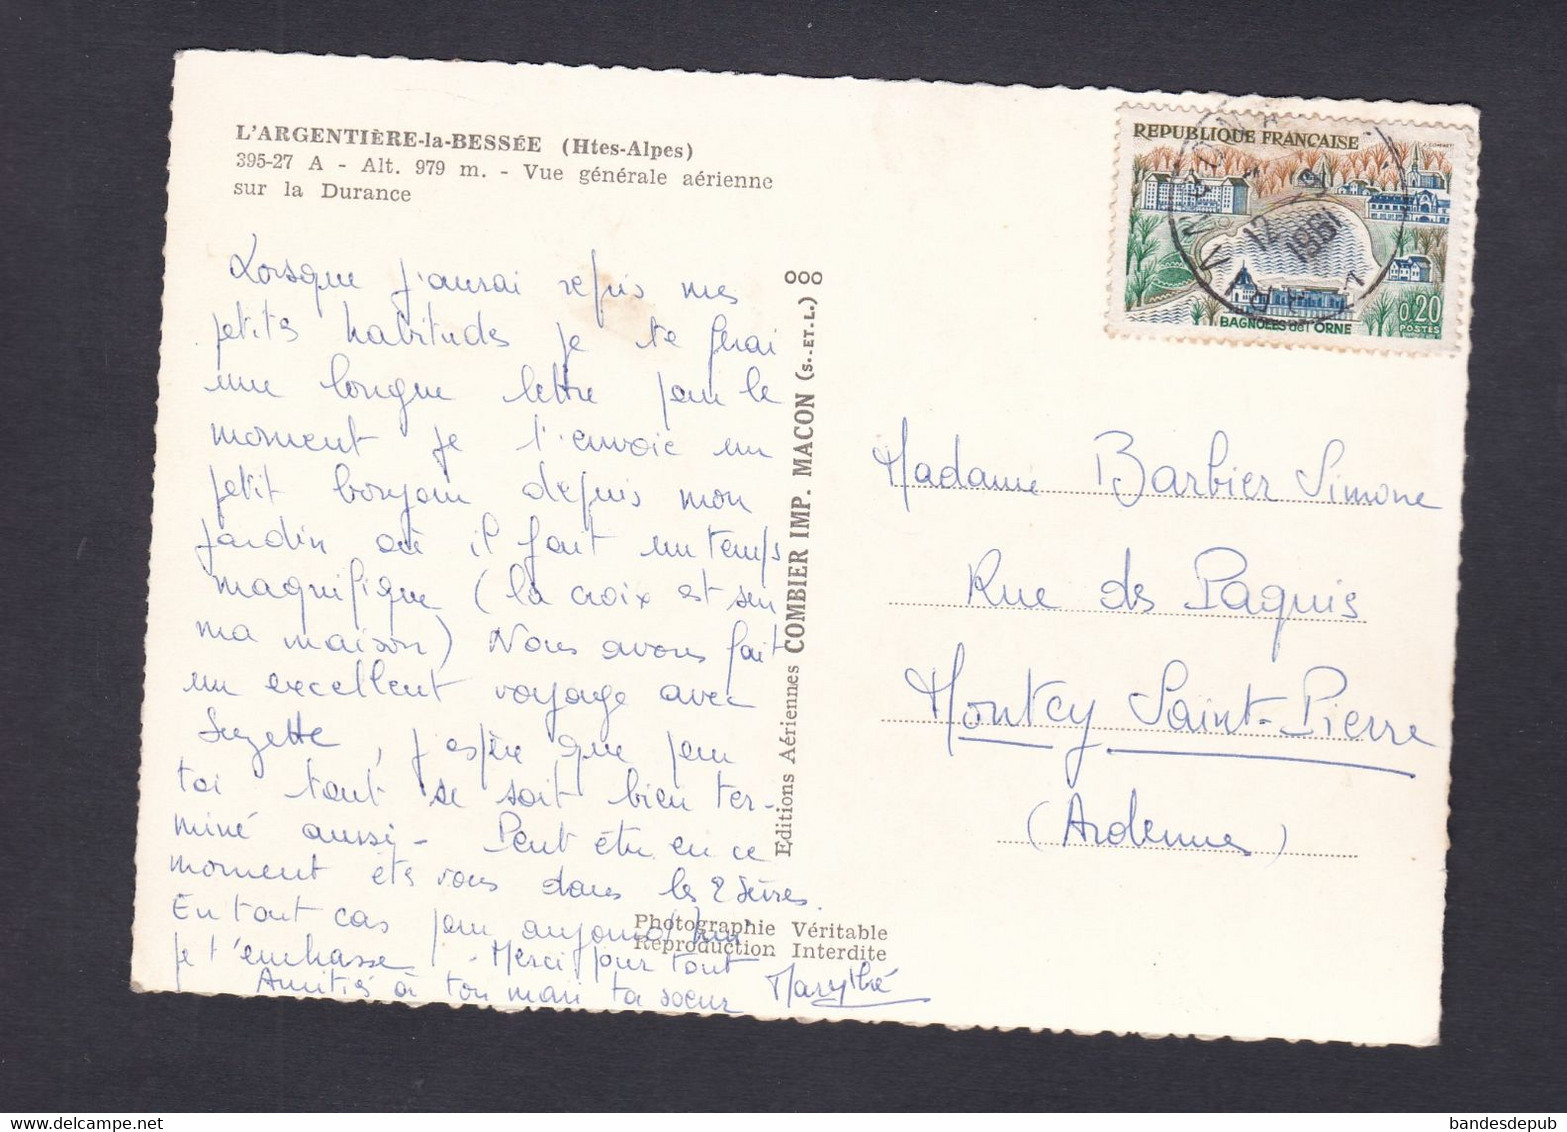 L'ARGENTIÈRE-la-BESSÉE (Htes-Alpes)
395-27 A - Alt. 979 m. - Vue générale aérienne
sur la Durance
Lorsque j'aurai repris mes
petites habitudes je te ferai
une longue lettre pour le
moment je t'envoie un
petit bonjour depuis mon
jardin où il fait un temps
magnifique (la croix est sur
ma maison) Nous avons fait
un excellent voyage avec
Suzette, j'espère que pour
toi tout se soit bien ter-
miné aussi - Peut être en ce
moment êtes vous dans les 2 Sèvres.
En tout cas pour aujourd'hui
je t'embrasse. Merci pour tout
Amitiés à ton mari ta soeur Marythé
Photographie Véritable
Reproduction Interdite
Editions Aériennes COMBIER IMP. MACON (S.-ET-L.)
REPUBLIQUE FRANÇAISE
BAGNOLES de l'ORNE
0,20
POSTES
12 -9
1961
Madame Barbier Simone
Rue des Paquis
Montcy Saint-Pierre
(Ardennes)
bandesdepub